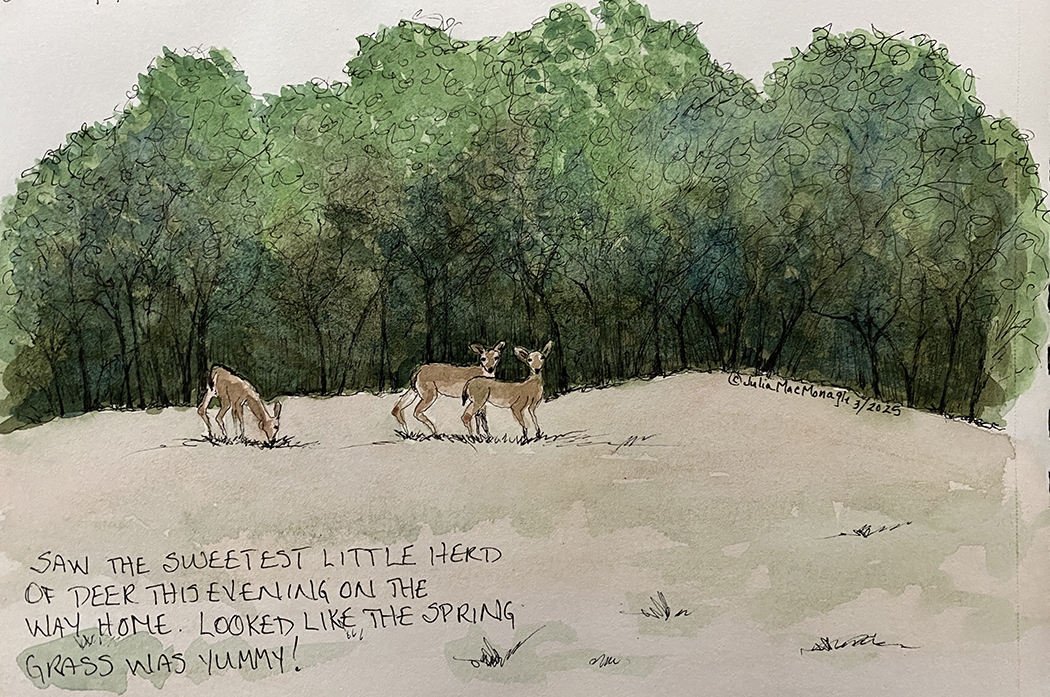 © Julia MacMonagle 3/2025
SAW THE SWEETEST LITTLE HERD
OF DEER THIS EVENING ON THE
WAY HOME. LOOKED LIKE THE SPRING
GRASS WAS YUMMY!